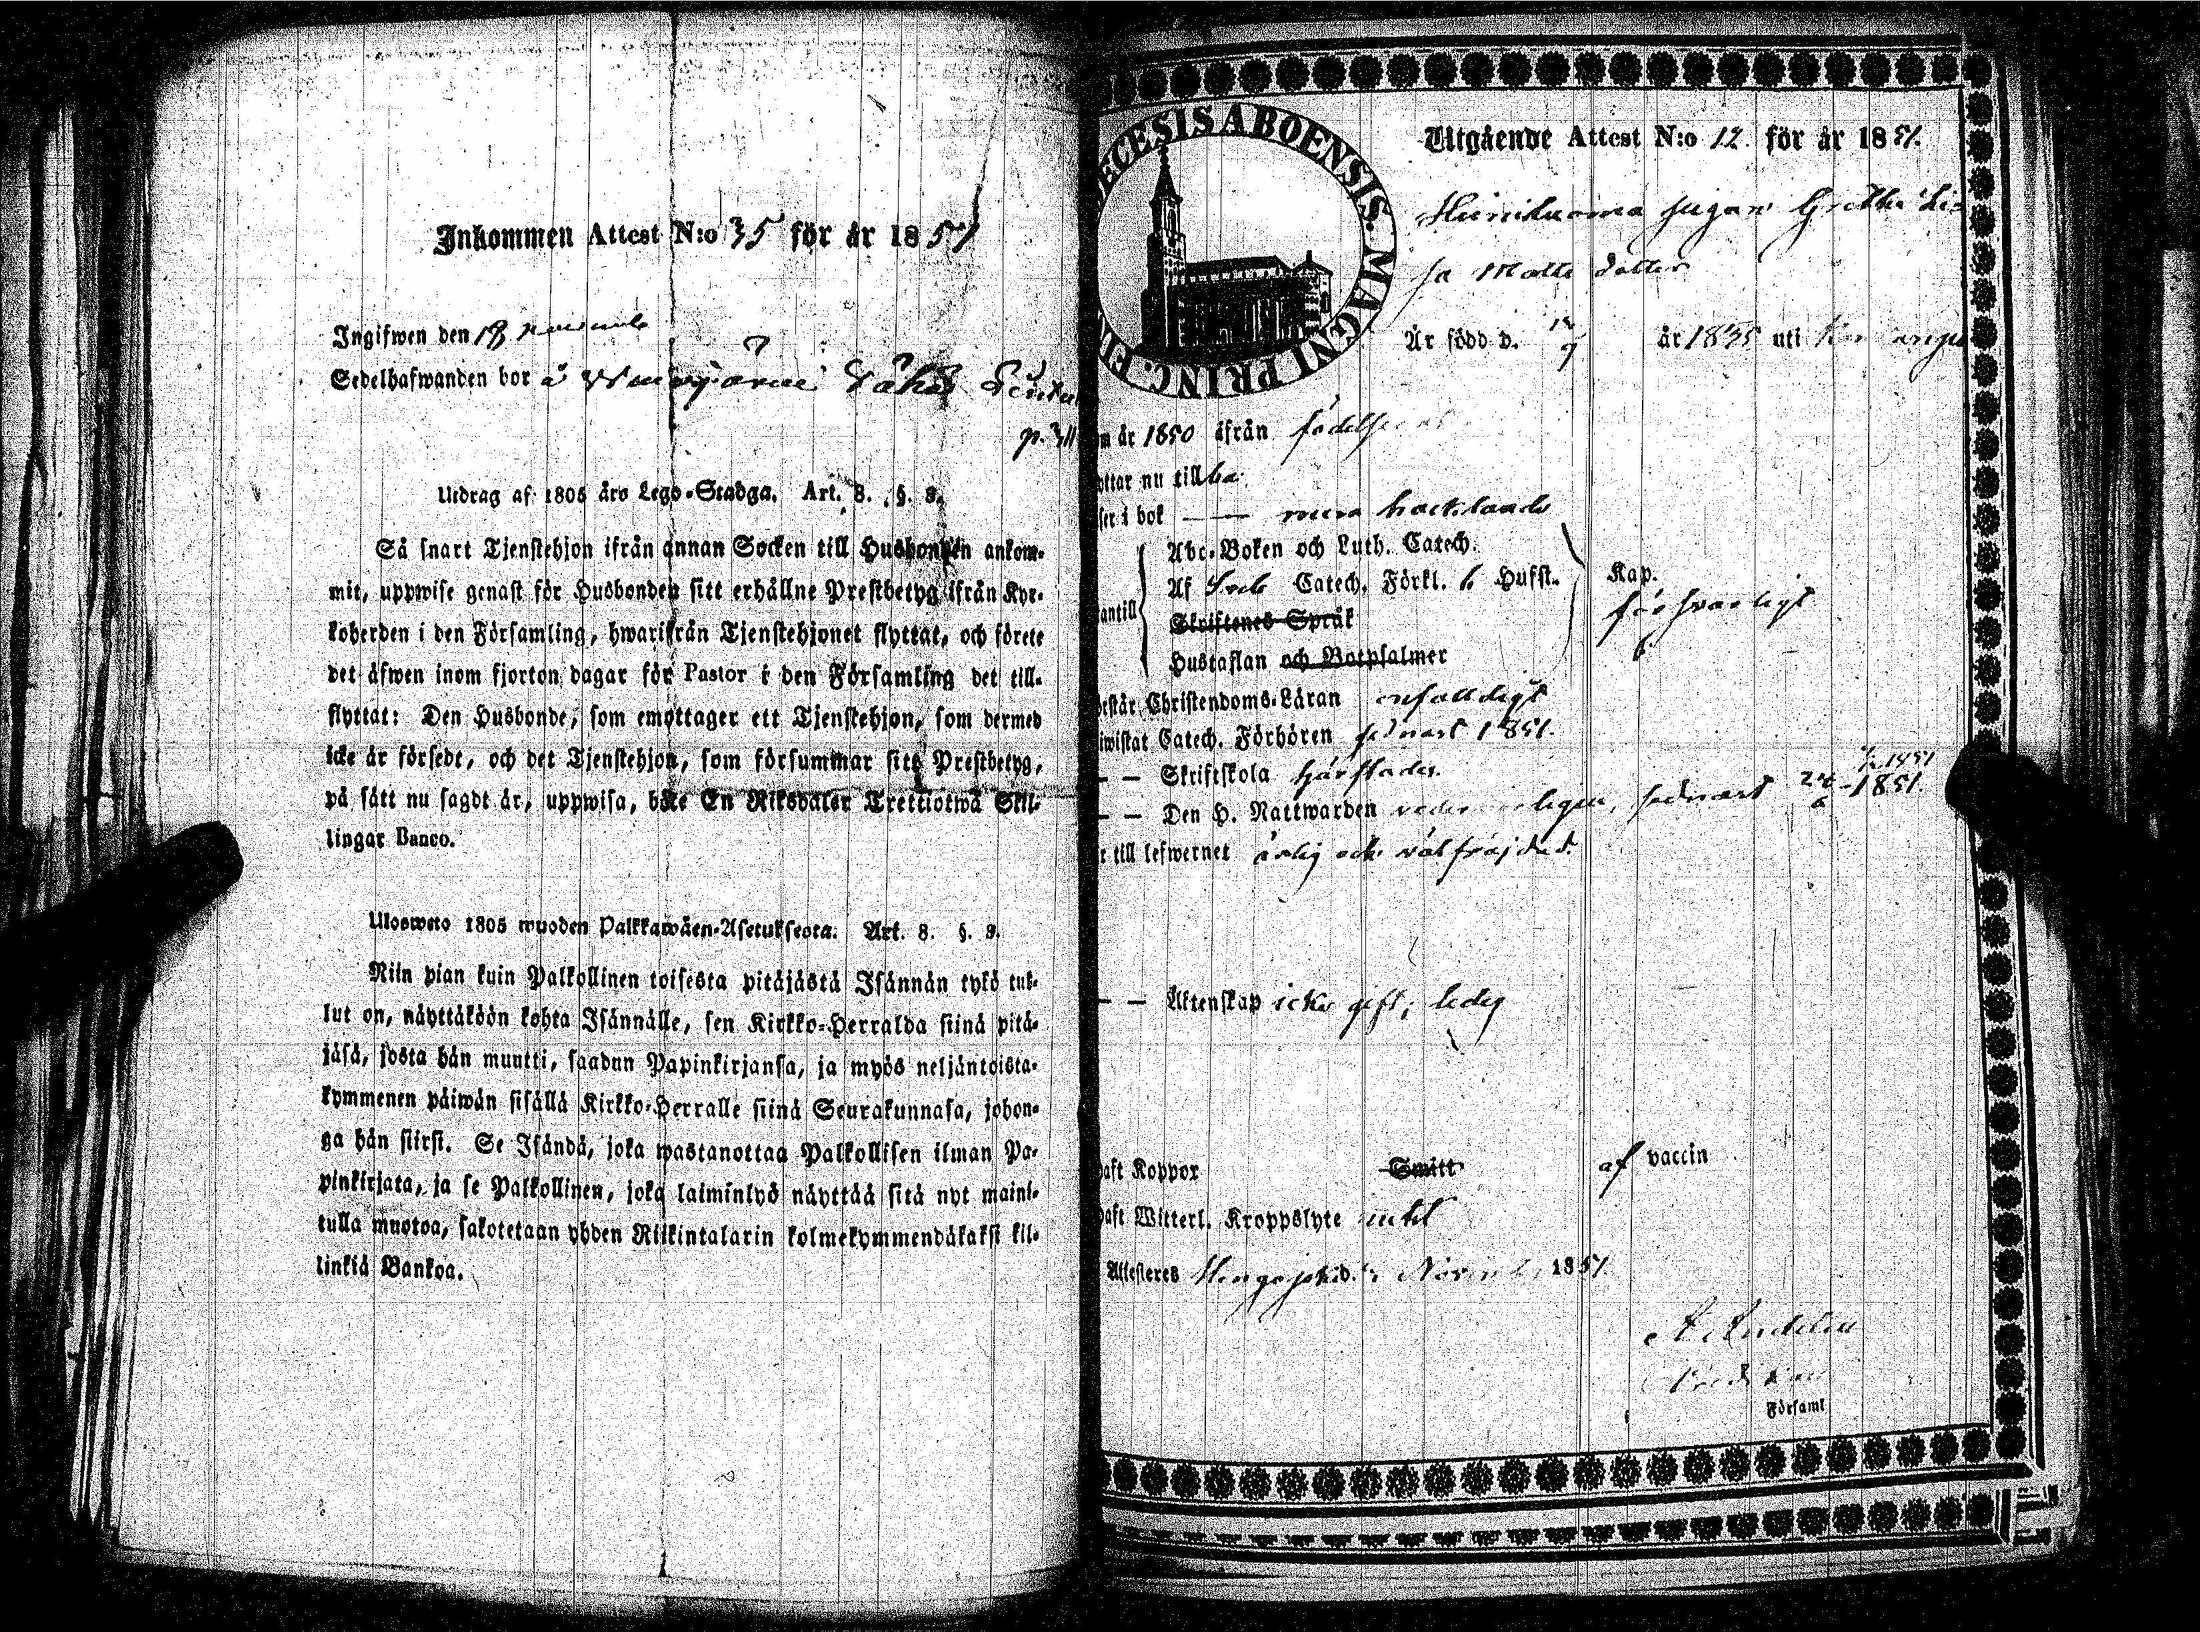 Inkommen Attest N:o 35 för år 1851
Ingifwen den 18 novemb
Sedelhafwanden bor å
p. 311
Utdrag af 1805 års Lego-Stadga. Art. 8. §. 9.
Så snart Tjenstehjon ifrån annan Socken till Husbonden ankom-
mit, uppwise genast för Husbonden sitt erhållne Prestbetyg ifrån Kyr-
koherden i den Församling, hwarifrån Tjenstehjonet flyttat, och förete
det äfwen inom fjorton dagar för Pastor i den Församling det till-
flyttat: Den Husbonde, som emottager ett Tjenstehjon, som dermed
icke är försedt, och det Tjenstehjon, som försummar sitt Prestbetyg,
på sätt nu sagdt är, uppwisa, böte En Riksdaler Trettiotwå Skil-
lingar Banco.
Ulosweto 1805 wuoden Palkkawäen-Asetuksesta. Art. 8. §. 9.
Niin pian kuin Palkollinen toisesta pitäjästä Isännän tykö tul-
lut on, näyttäköön kohta Isännälle, sen Kirkko-Herralda siinä pitä-
jäsä, josta hän muutti, saadun Papinkirjansa, ja myös neljäntoista-
kymmenen päiwän sisällä Kirkko-Herralle siinä Seurakunnasa, johon-
ga hän siirsi. Se Isändä, joka wastanottaa Palkollisen ilman Pa-
pinkirjata, ja se Palkollinen, joka laiminlyö näyttää sitä nyt maini-
tulla muotoa, sakotetaan yhden Riikintalarin kolmekymmendäkaksi kil-
linkiä Bankoa.
ECESIS ABOENSIS. MAGNI PRINC. FIN
Utgående Attest N:o 12 för år 1851.
pigan Gretha Lis
sa Matts dotter
Är född d. 12/9 år 1835 uti
m år 1850 ifrån födelse
ottar nu tillba
ser i bok —— rena
antill
Abc-Boken och Luth. Catech.
Af Sveb Catech. Förkl. 6 Hufst.
Skriftenes Språk
Hustaflan och Botpsalmer
Kap.
försvarligt
estår Christendoms-Läran enfaldigt
iwistat Catech. Förhören sednast 1851.
— — Skriftskola
— — Den H. Nattwarden sednast 1851.
r till lefwernet ärlig och välfräjdad.
— — Äktenskap icke gift; ledig
aft Koppor Smitt af vaccin
aft Witterl. Kroppslyte intet
Attesteres d. Novemb 1851
Församl